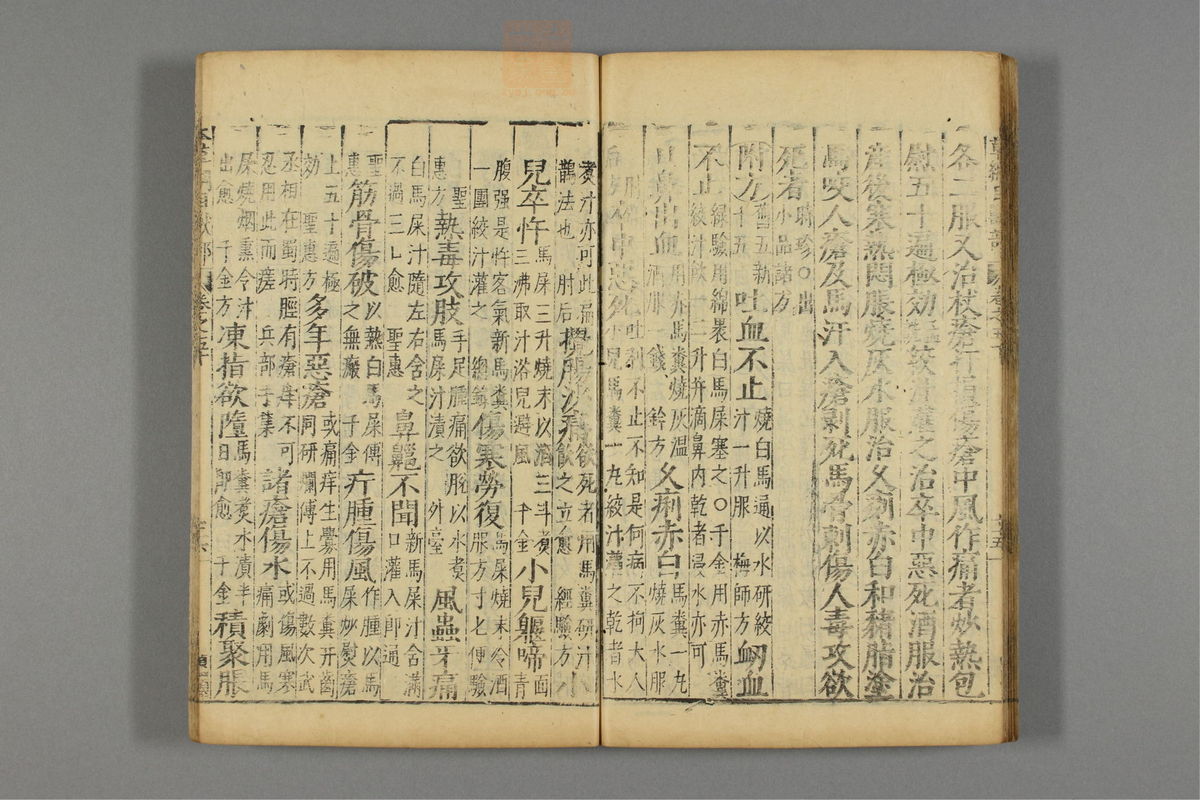 合二服又治杖瘡打損傷瘡中風作痛者炒熱包
慰五十遍極効 絞汁灌之治卒中惡死酒服治
産後寒熱悶脹燒灰水服治久痢赤白和豬脂塗
馬咬人瘡及馬汗入瘡剝死馬骨刺傷人毒攻欲
死者時珍○出小品諸方
附方舊五新十五吐血不止燒白馬通以水研絞汁一升服 梅師方衂血
不止綿裹白馬屎塞之○千金用赤馬糞絞汁飲一二升并滴鼻内乾者浸水亦可
口鼻出血用赤馬糞燒灰温酒服一錢 鈐方久痢赤白馬糞一丸燒灰水服
卒中惡死吐利不止不知是何病不拘大人小兒馬糞一丸絞汁灌之乾者水
煑汁亦可此扁鵲法也 肘后攪腸沙痛欲死者用馬糞研汁飲之立愈 經驗方小
兒卒忤馬屎三升燒末以酒三斗煑三沸取汁浴兒避風 千金小兒躽啼面青
腹强是忤客氣新馬糞一團絞汁灌之 總錄傷寒勞復馬屎燒末冷酒服方寸匕便驗
聖惠方熱毒攻肢手足腫痛欲脫以水煑馬屎汁漬之 外臺風蟲牙痛
白馬屎汁隨左右含之不過三口愈 聖惠鼻齆不聞新馬屎汁含滿口灌入即通
聖惠筋骨傷破以熱白馬屎傅之無瘢 千金疔腫傷風作腫以馬屎炒熨瘡
上五十遍極効 聖惠方多年惡瘡或痛痒生釁用馬糞并齒同研爛傅上不過數次武
丞相在蜀時脛有瘡痒不可忍用此而瘥 兵部手集諸瘡傷水或傷風寒痛劇用馬
屎燒烟熏令汁出愈 千金方凍指欲墮馬糞煑水漬半日即愈 千金積聚脹